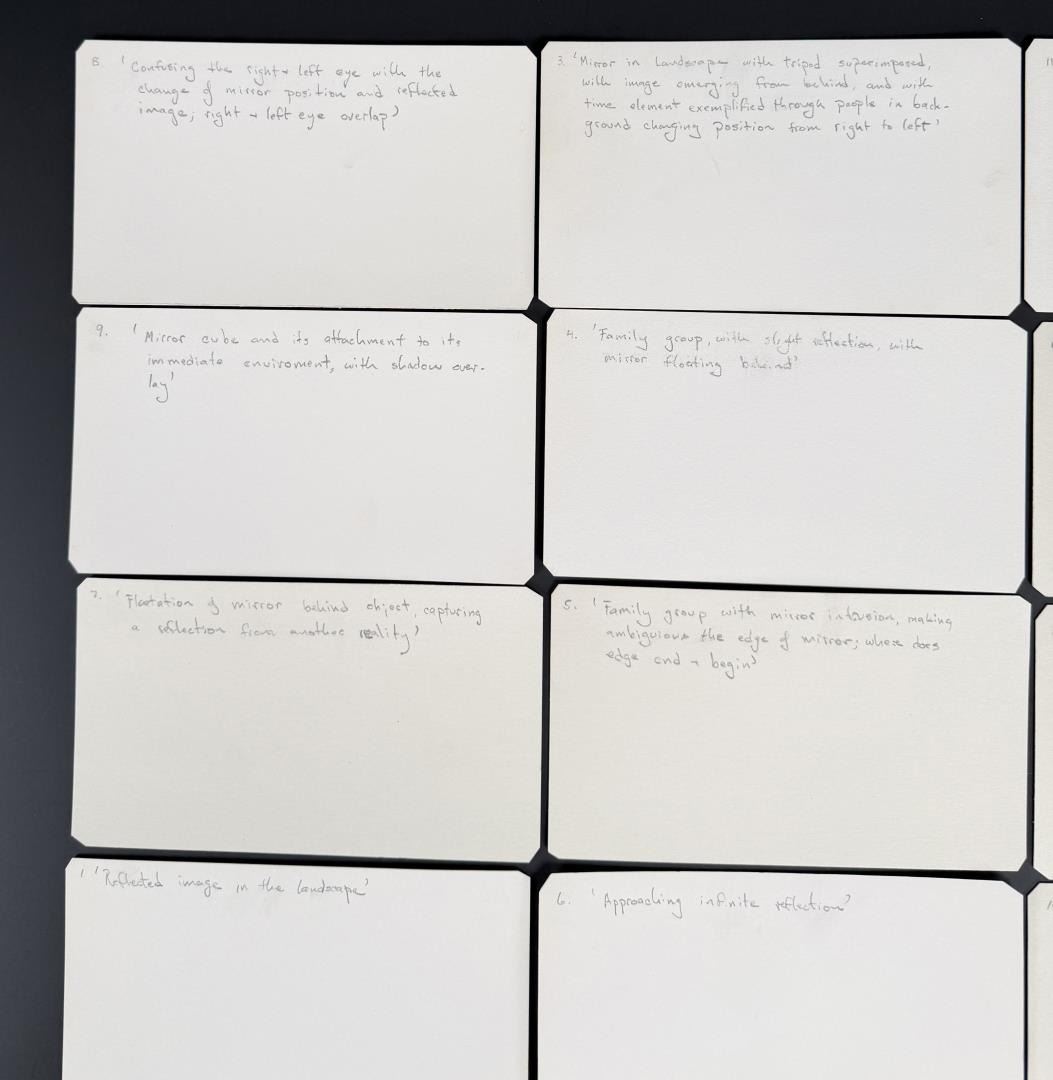 8. 'Confusing the right + left eye with the
change of mirror position and reflected
image; right + left eye overlap'
3. 'Mirror in Landscape with tripod superimposed,
with image emerging from behind, and with
time element exemplified through people in back-
ground changing position from right to left'
9. 'Mirror cube and its attachment to its
immediate enviroment, with shadow over-
lay'
4. 'Family group, with slight reflection, with
mirror floating behind'
7. 'Floatation of mirror behind object, capturing
a reflection from another reality'
5. 'Family group with mirror intrusion, making
ambiguious the edge of mirror; where does
edge end + begin'
1 'Reflected image in the landscape'
6. 'Approaching infinite reflection'